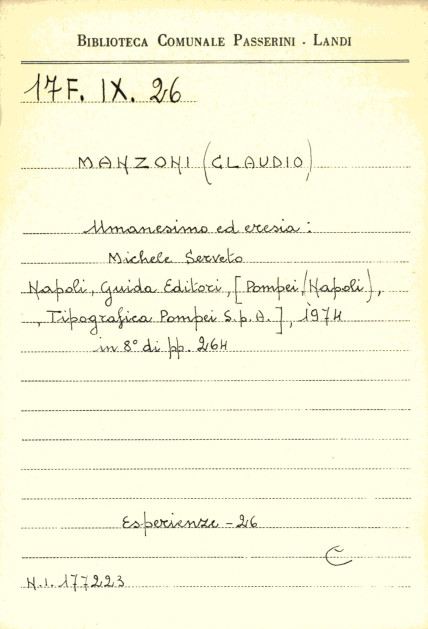 BIBLIOTECA COMUNALE PASSERINI - LANDI
17F. IX. 26
MANZONI (CLAUDIO)
Umanesimo ed eresia:
Michele Serveto
Napoli, Guida Editori, [Pompei (Napoli),
, Tipografica Pompei S.p.A.], 1974
in 8° di pp. 264
Esperienze - 26
C
N.I. 177223